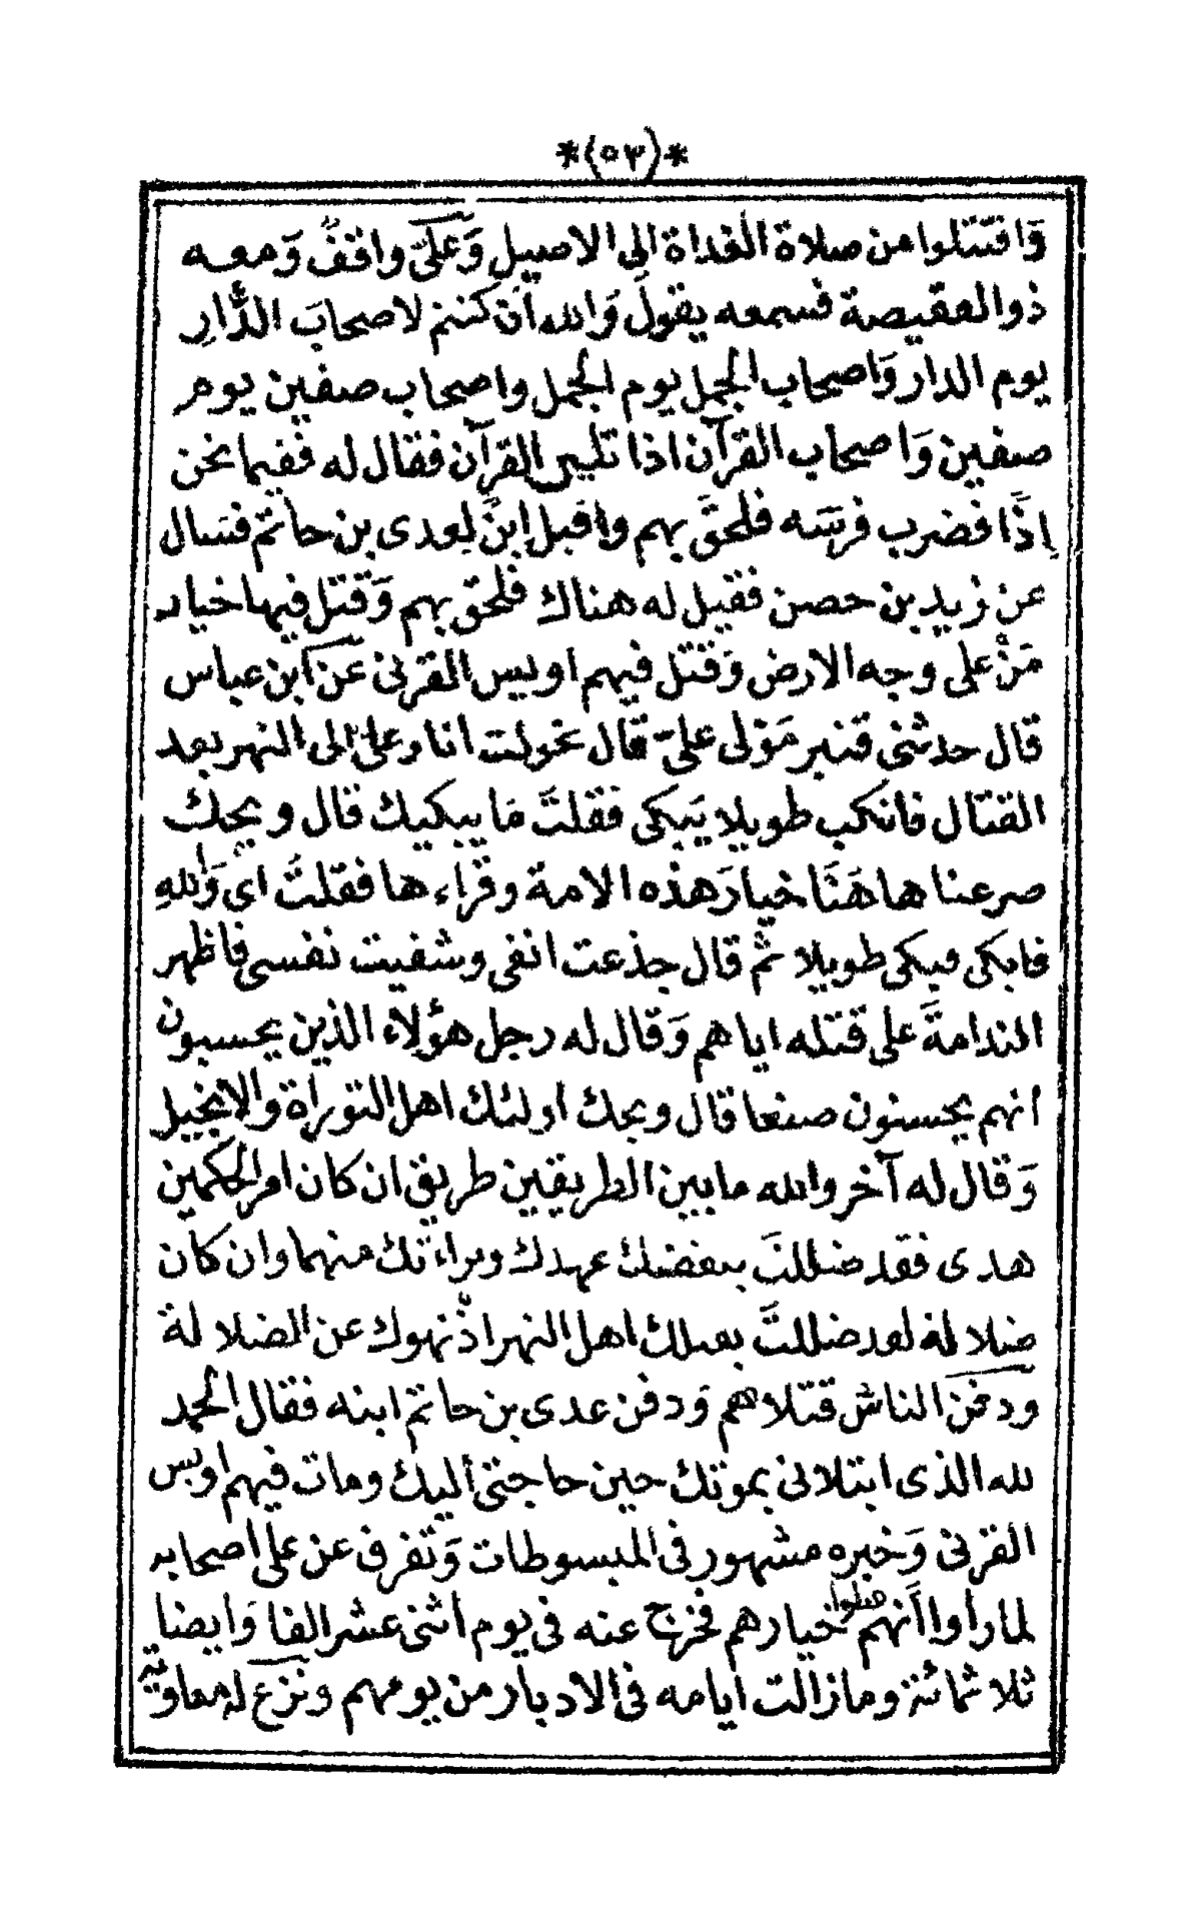 *(٥٣)*
وَاقتتلوا من صلاة الغداة الى الاصيل وَعلىّ واقفٌ وَمعه
ذو العقيصة فسمعه يقول وَالله ان كنتم لاصحابَ الدَّارِ
يوم الدار وَاصحاب الجمل يوم الجمل واصحاب صفين يوم
صفين وَاصحاب القرآن اذا تلى القرآن فقال له ففيما نحن
اِذًا فضرب فرسَه فلحقَ بهم واقبل ابنٌ لِعدى بن حاتم فسال
عن زيد بن حصن فقيل له هناك فلحق بهم وَقتل فيها خيار
مَنْ على وجه الارض وَقتل فيهم اويس القرنى عَن ابن عباس
قال حدثنى قنبر مَوْلى علىّ قال تحولت انا وعلىّ الى النهر بعد
القتال فانكب طويلا يَبكى فقلتَ مَا يبكيك قال ويحك
صرعنا هاهَنَا خيارَ هذه الامة وقرّاءها فقلتُ اى وَاللهِ
فابكى فبكى طويلا ثم قال جذعت انفى وشفيت نفسى فاظهر
الندامةَ على قتله اياهم وَقال له رجل هؤلاء الذين يحسبون
انهم يحسنون صنعا قال ويحك اولئك اهل التوراة والانجيل
وَقال له آخر والله ما بين الطريقين طريق ان كان امر الحكمين
هدى فقد ضللتَ بنقضك عهدك وبراءتك منهما وان كان
ضلالة لعد ضللتَ بقتلك اهل النهر اذْ نهوك عن الضلالة
ودفن الناسُ قتلاهم وَدفن عدى بن حاتم ابنه فقال الحمد
لله الذى ابتلانى بموتك حين حاجتى اليك ومات فيهم اويس
القرنى وَخبره مشهور فى المبسوطات وَتفرق عن على اصحابه
لما رأوا انهم قتلوا خيارهم فخرج عنه فى يوم اثنى عشر الفا وَايضا
ثلاثمائة وما زالت ايامه فى الادبار من يومهم ونزع له معاوية